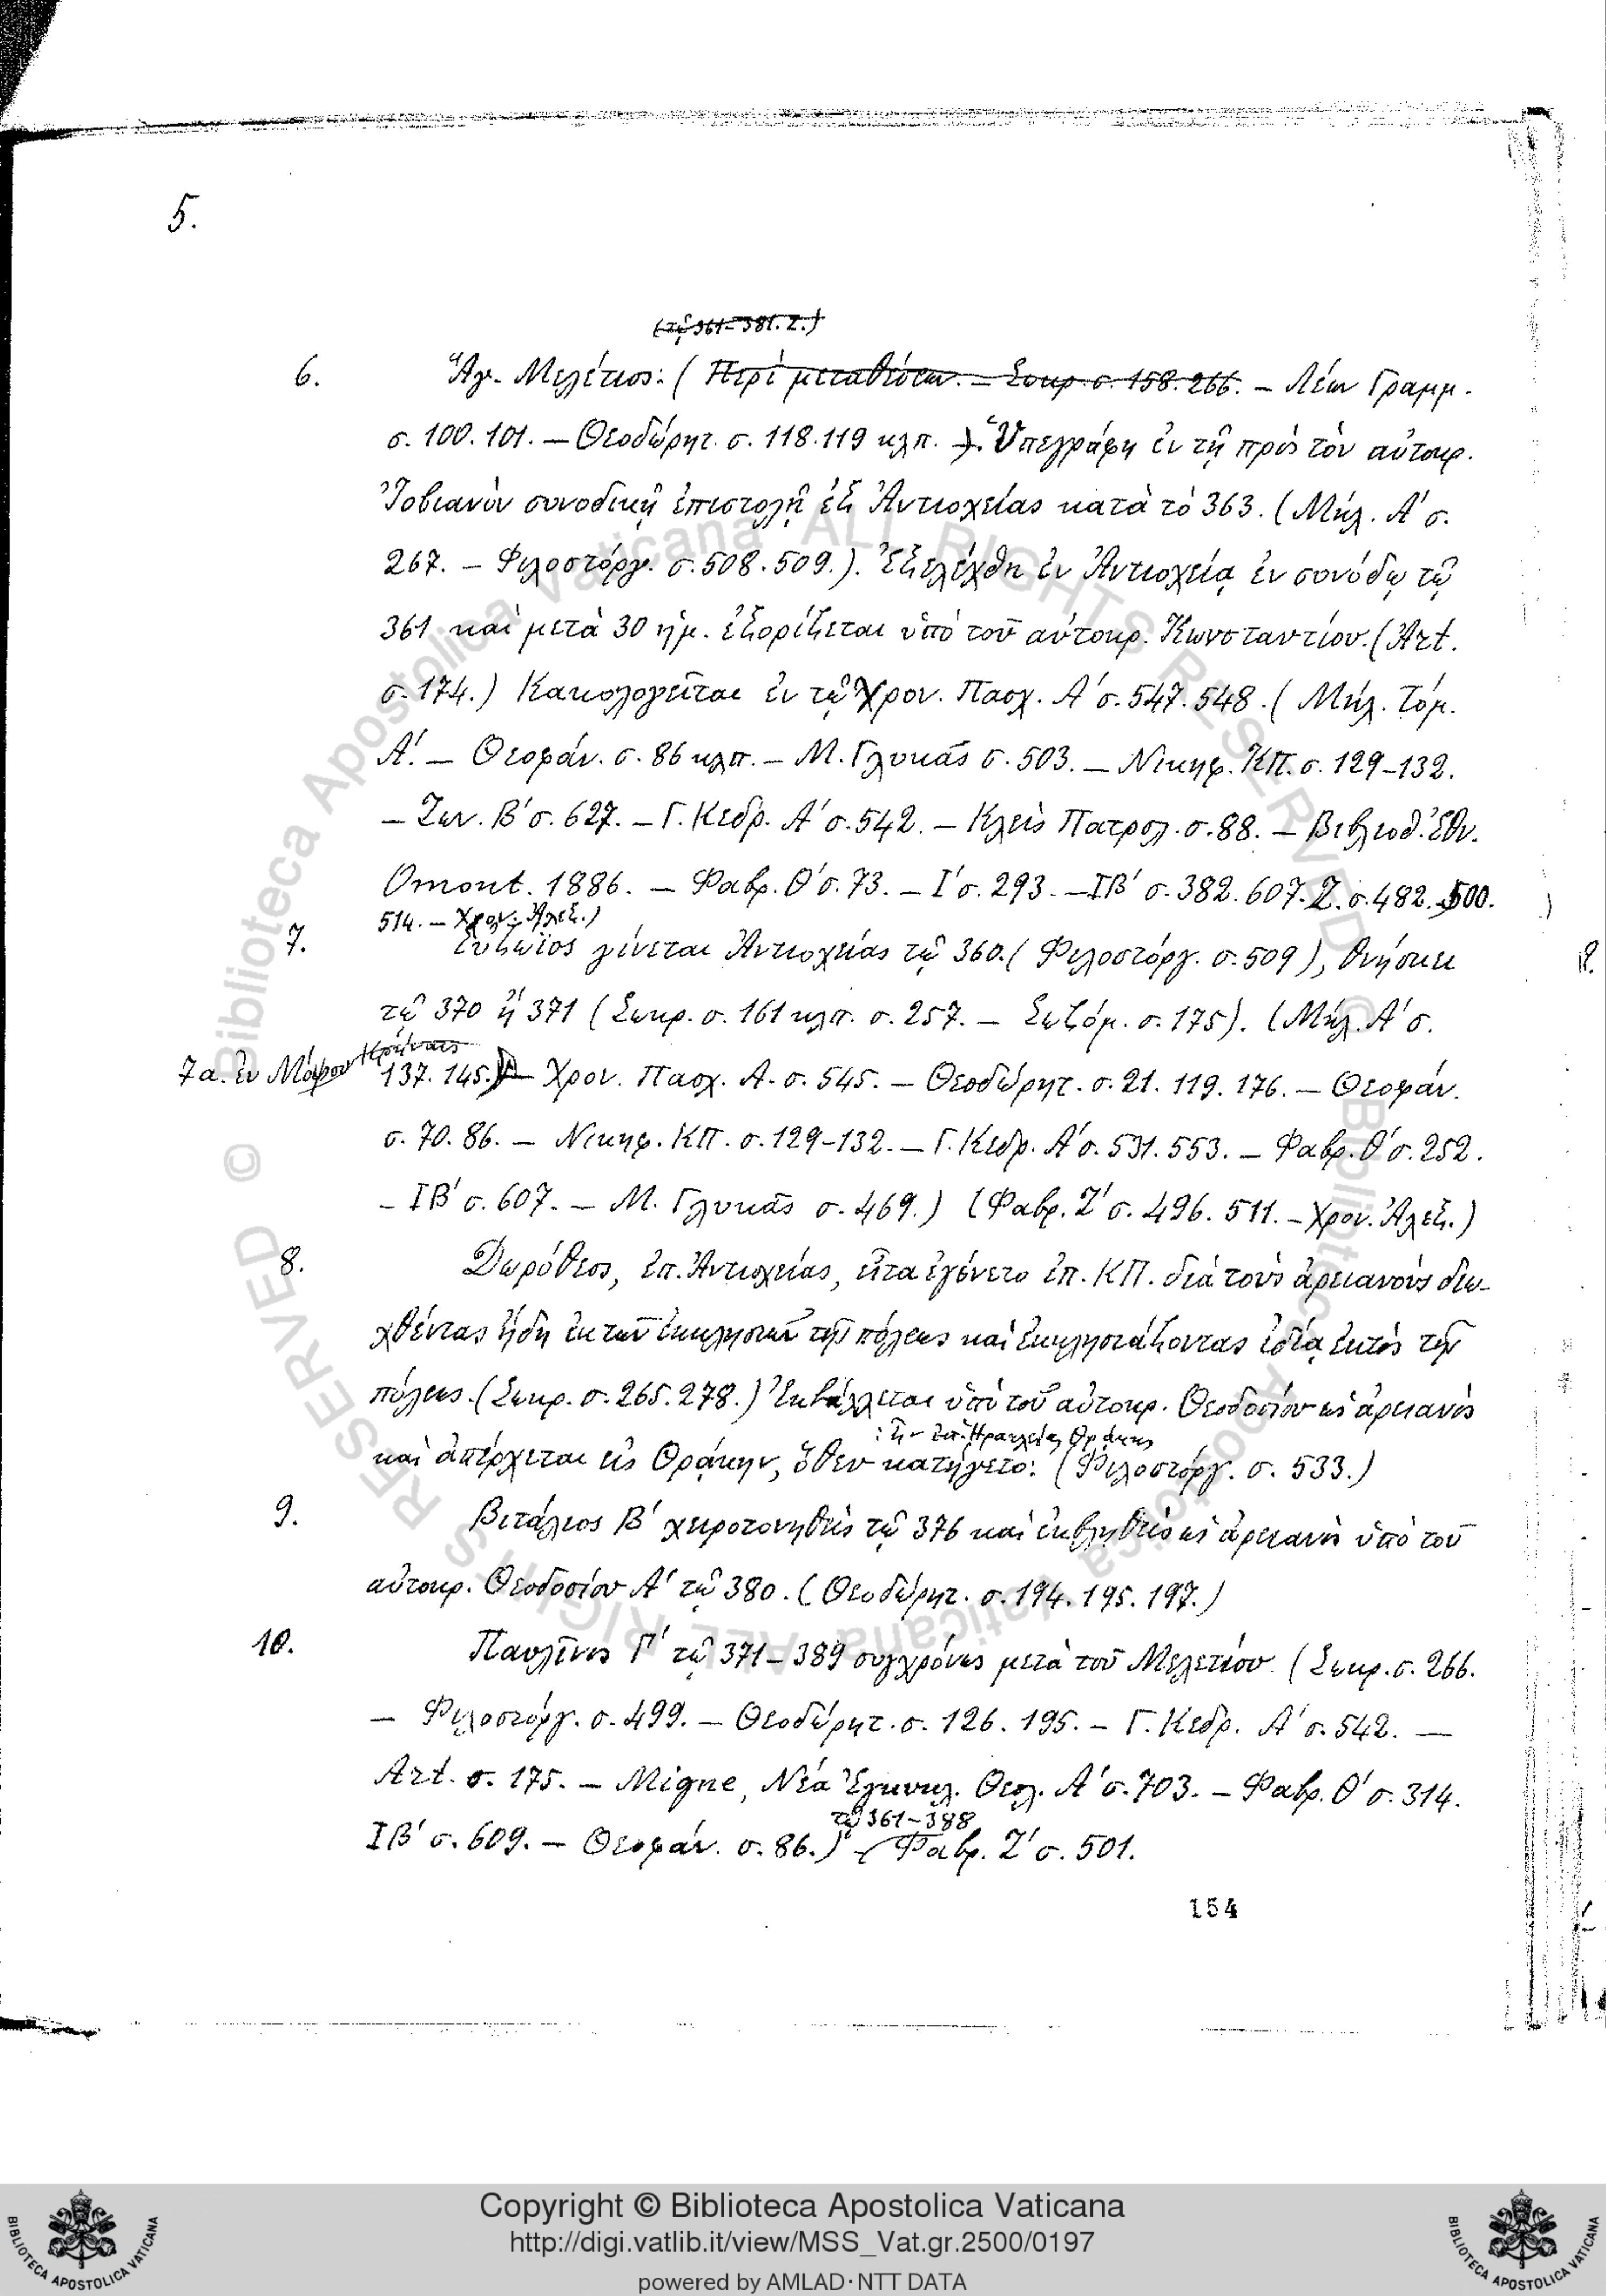 5.
(τῷ 361–381. Ζ.)
6. Ἅγ. Μελέτιος: (Περὶ μεταθέσεων. – Σωκρ. σ. 158. 266. – Λέων Γραμμ.
σ. 100. 101. – Θεοδώρητ. σ. 118. 119 κλπ. ). Ὑπεγράφη ἐν τῇ πρὸς τὸν αὐτοκρ.
Ἰοβιανὸν συνοδικῇ ἐπιστολῇ ἐξ Ἀντιοχείας κατὰ τὸ 363. (Μήλ. Α΄ σ.
267. – Φιλοστόργ. σ. 508. 509.). Ἐξελέχθη ἐν Ἀντιοχείᾳ ἐν συνόδῳ τῷ
361 καὶ μετὰ 30 ἡμ. ἐξορίζεται ὑπὸ τοῦ αὐτοκρ. Κωνσταντίου. (Art.
σ. 174.) Κακολογεῖται ἐν τῷ Χρον. Πασχ. Α΄ σ. 547. 548. (Μήλ. Τόμ.
Α΄. – Θεοφάν. σ. 86 κλπ. – Μ. Γλυκᾶς σ. 503. – Νικηφ. ΚΠ. σ. 129–132.
– Ζων. Β΄ σ. 627. – Γ. Κεδρ. Α΄ σ. 542. – Κλεὶς Πατρολ. σ. 88. – Βιβλιοθ. Ἐθν.
Omont. 1886. – Φαβρ. Θ΄ σ. 73. – Ι΄ σ. 293. – ΙΒ΄ σ. 382. 607. Ζ. σ. 482. 500.
514. – Χρον. Ἀλεξ.)
7. Εὐδώϊος γίνεται Ἀντιοχείας τῷ 360. (Φιλοστόργ. σ. 509), θνήσκει
τῷ 370 ἢ 371 (Σωκρ. σ. 161 κλπ. σ. 257. – Σωζόμ. σ. 175). (Μήλ. Α΄ σ.
7α. ἐν Μάρου Κρήναις
137. 145.) – Χρον. Πασχ. Α. σ. 545. – Θεοδώρητ. σ. 21. 119. 176. – Θεοφάν.
σ. 70. 86. – Νικηφ. ΚΠ. σ. 129–132. – Γ. Κεδρ. Α΄ σ. 531. 553. – Φαβρ. Θ΄ σ. 252.
– ΙΒ΄ σ. 607. – Μ. Γλυκᾶς σ. 469.) (Φαβρ. Ζ΄ σ. 496. 511. – Χρον. Ἀλεξ.)
8. Δωρόθεος, ἐπ. Ἀντιοχείας, εἶτα ἐγένετο ἐπ. ΚΠ. διὰ τοὺς ἀρειανοὺς διω-
χθέντας ἤδη ἐκ τῶν ἐκκλησιῶν τῆς πόλεως καὶ ἐκκλησιάζοντας ἰδίᾳ ἐκτὸς τῆς
πόλεως. (Σωκρ. σ. 265. 278.) Ἐκβάλλεται ὑπὸ τοῦ αὐτοκρ. Θεοδοσίου ὡς ἀρειανὸς
: ἦν ἐπ. Ἡρακλείας Θρᾴκης
καὶ ἀπέρχεται εἰς Θρᾴκην, ὅθεν κατήγετο: (Φιλοστόργ. σ. 533.)
9. Βιτάλιος Β΄ χειροτονηθεὶς τῷ 376 καὶ ἐκβληθεὶς ὡς ἀρειανὸς ὑπὸ τοῦ
αὐτοκρ. Θεοδοσίου Α΄ τῷ 380. (Θεοδώρητ. σ. 194. 195. 197.)
10. Παυλῖνος Γ΄ τῷ 371–389 συγχρόνως μετὰ τοῦ Μελετίου. (Σωκρ. σ. 266.
– Φιλοστόργ. σ. 499. – Θεοδώρητ. σ. 126. 195. – Γ. Κεδρ. Α΄ σ. 542. –
Art. σ. 175. – Migne, Νέα Ἐγκυκλ. Θεολ. Α΄ σ. 703. – Φαβρ. Θ΄ σ. 314.
τῷ 361–388
ΙΒ΄ σ. 609. – Θεοφάν. σ. 86.) (Φαβρ. Ζ΄ σ. 501.
154
© Biblioteca Apostolica Vaticana ALL RIGHTS RESERVED
© Biblioteca Apostolica Vaticana ALL RIGHTS RESERVED
Copyright © Biblioteca Apostolica Vaticana
http://digi.vatlib.it/view/MSS_Vat.gr.2500/0197
powered by AMLAD·NTT DATA
BIBLIOTECA APOSTOLICA VATICANA
BIBLIOTECA APOSTOLICA VATICANA